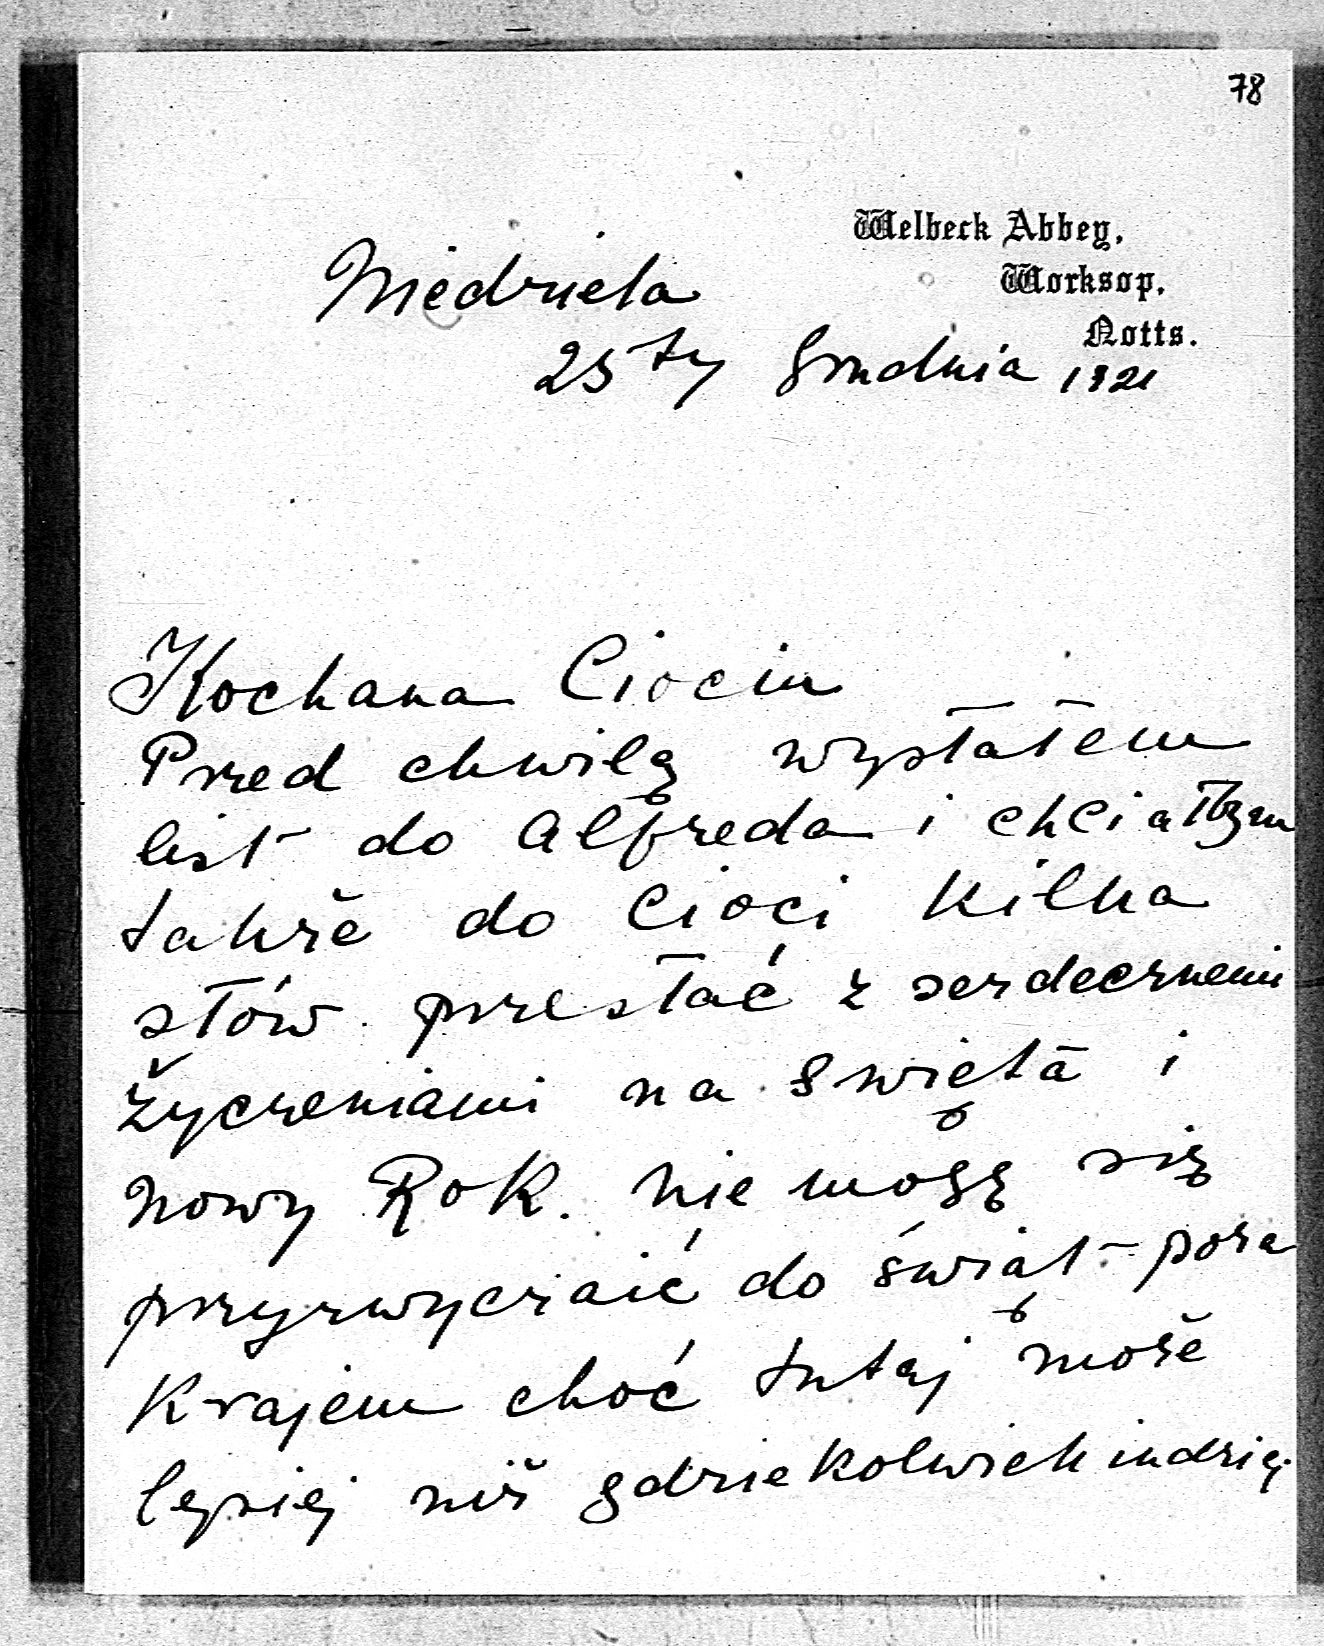 78
Welbeck Abbey,
Worksop,
Notts.
Niedziela
25ty Grudnia 1921
Kochana Ciociu
Przed chwilą wysłałem
list do Alfreda i chciałbym
także do Cioci kilka
słów przesłać z serdecznemi
życzeniami na Święta i
nowy Rok. Nie mogę się
przyzwyczaić do świąt poza
Krajem choć tutaj może
lepiej niż gdziekolwiek indziej